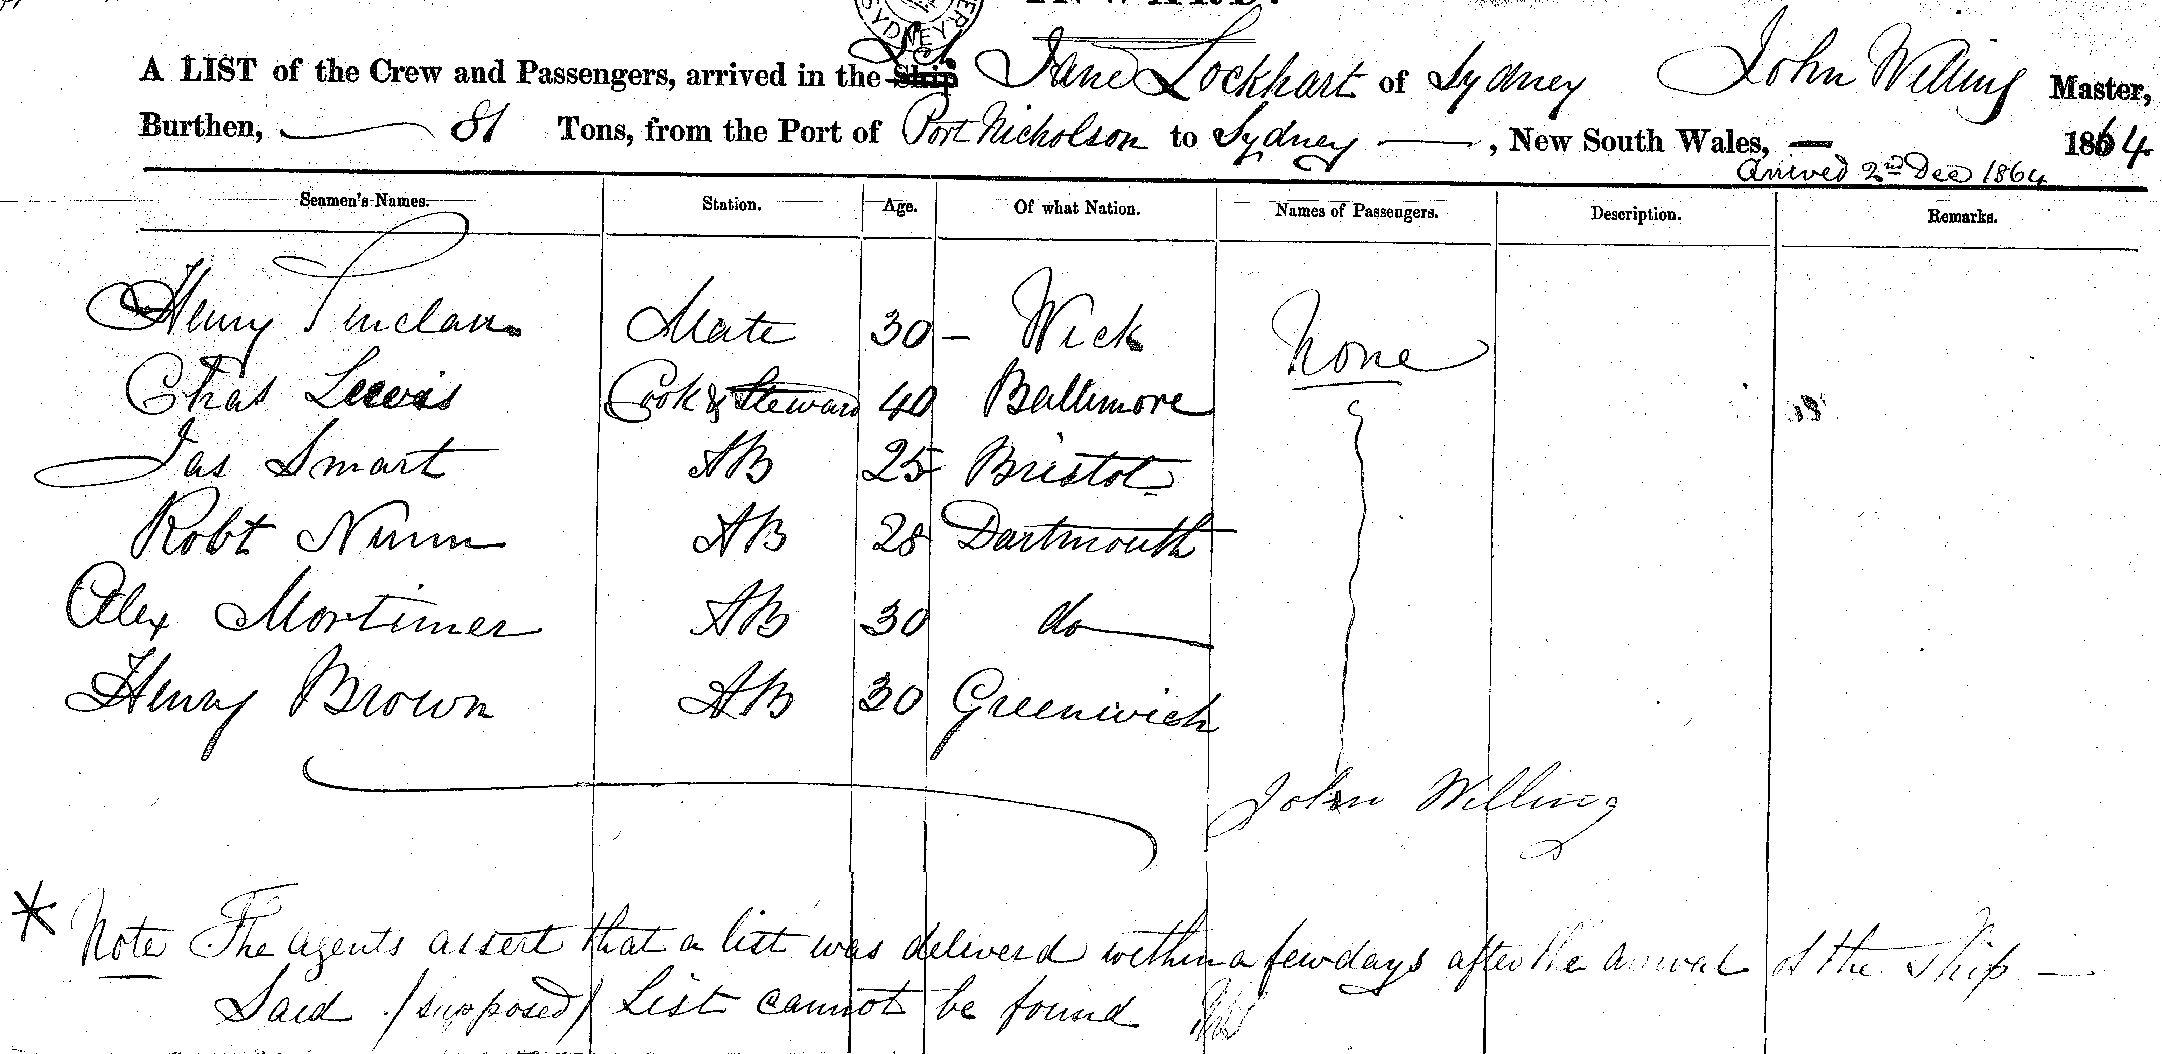 INWARD.
A LIST of the Crew and Passengers, arrived in the Ship Jane Lockhart of Sydney John Willing Master,
Burthen, 81 Tons, from the Port of Port Nicholson to Sydney —, New South Wales, — 1864
Arrived 2nd Dec 1864
Seamen's Names. Station. Age. Of what Nation. Names of Passengers. Description. Remarks.
Henry Sinclair Mate 30 – Wick None
Chas Lewis Cook & Steward 40 Baltimore
Jas Smart AB 25 Bristol
Robt Nunn AB 28 Dartmouth
Alex Mortimer AB 30 do
Henry Brown AB 30 Greenwich
John Willing
* Note The Agents assert that a list was deliverd within a few days after the arrival of the Ship —
Said /supposed/ List cannot be found